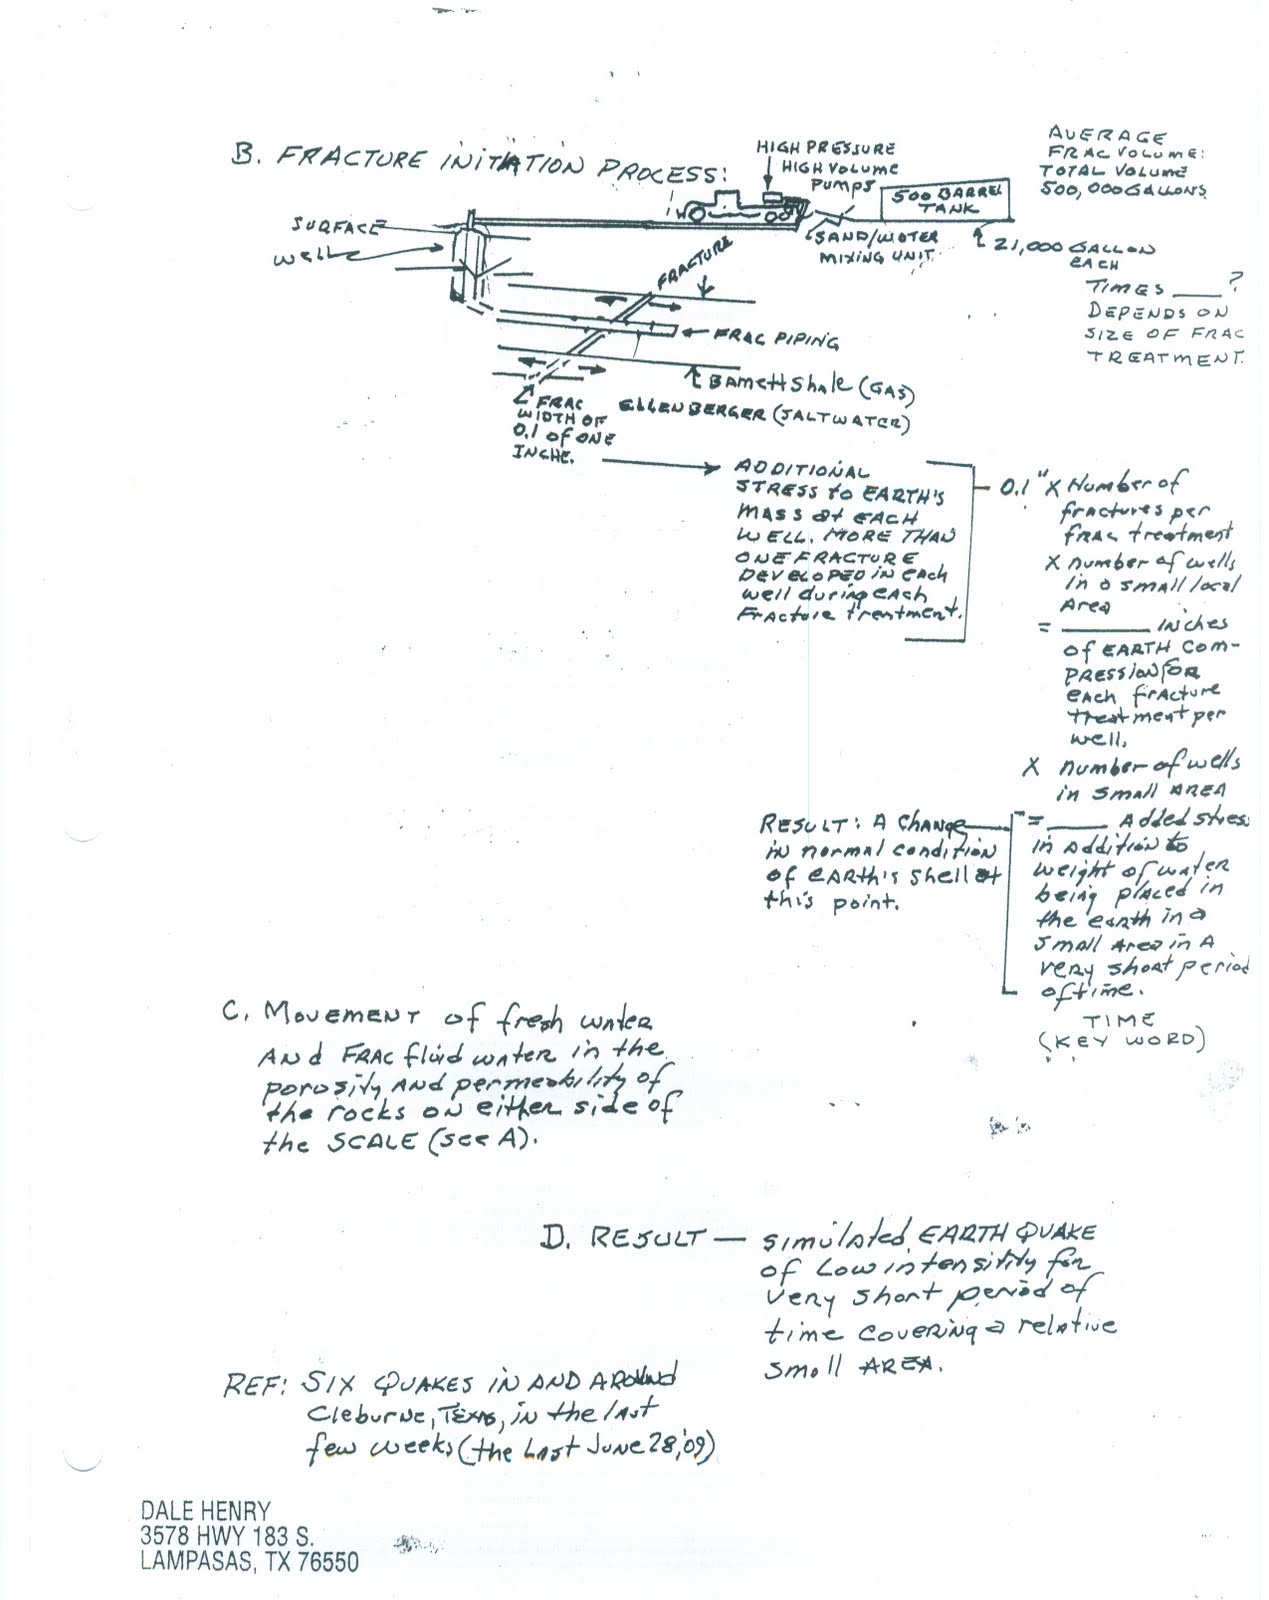 B. FRACTURE INITIATION PROCESS:
HIGH PRESSURE
HIGH VOLUME
PUMPS
500 BARREL
TANK
AVERAGE
FRAC VOLUME:
TOTAL VOLUME
500,000 GALLONS
SURFACE
well
SAND/WATER
MIXING UNIT
21,000 GALLON
EACH
TIMES ____ ?
DEPENDS ON
SIZE OF FRAC
TREATMENT.
FRACTURE
FRAC PIPING
Barnett Shale (GAS)
ELLENBERGER (SALTWATER)
FRAC
WIDTH OF
0.1 of ONE
INCHE.
ADDITIONAL
STRESS to EARTH'S
MASS at EACH
WELL. MORE THAN
ONE FRACTURE
DEVELOPED in each
well during each
Fracture treatment.
0.1" X Number of
fractures per
frac treatment
X number of wells
in a small local
Area
= ________ inches
of EARTH COM-
PRESSION for
each fracture
treatment per
well.
X number of wells
in small AREA
= ______ Added stress
in addition to
weight of water
being placed in
the earth in a
small area in A
very short period
of time.
TIME
(KEY WORD)
RESULT: A change
in normal condition
of EARTH'S shell at
this point.
C. Movement of fresh water
And FRAC fluid water in the
porosity and permeability of
the rocks on either side of
the SCALE (see A).
D. RESULT — simulated EARTH QUAKE
of low intensitity for
very short period of
time covering a relative
small AREA.
REF: SIX QUAKES IN AND AROUND
Cleburne, Texas, in the last
few weeks (the last June 28, '09)
DALE HENRY
3578 HWY 183 S.
LAMPASAS, TX 76550